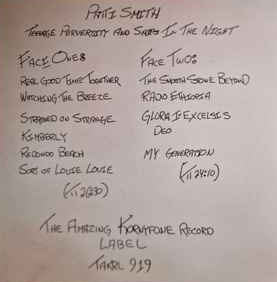 PATTI SMITH
TEENAGE PERVERSITY AND SHIPS IN THE NIGHT
FACE ONE:
REAL GOOD TIME TOGETHER
WATCHING THE BREEZE
STRANDED ON STRANGE
KIMBERLY
REDONDO BEACH
SORT OF LOUIE LOUIE
FACE TWO:
THE SMOOTH STONE BEYOND
RADIO ETHIOPIA
GLORIA IN EXCELSIS
DEO
MY GENERATION
(TT 24:10)
THE AMAZING KORNYFONE RECORD
LABEL
TAKRL 919